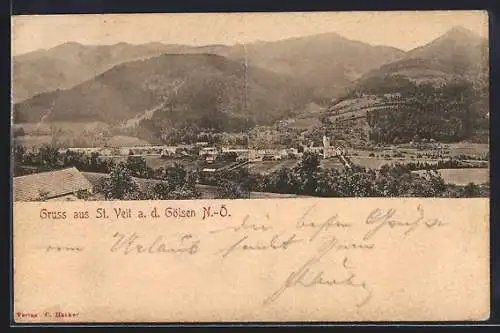 Gruss aus St. Veit a. d. Gölsen N.-Ö.
die besten Grüße
vom Urlaub sendet
Verlag C. Hacker